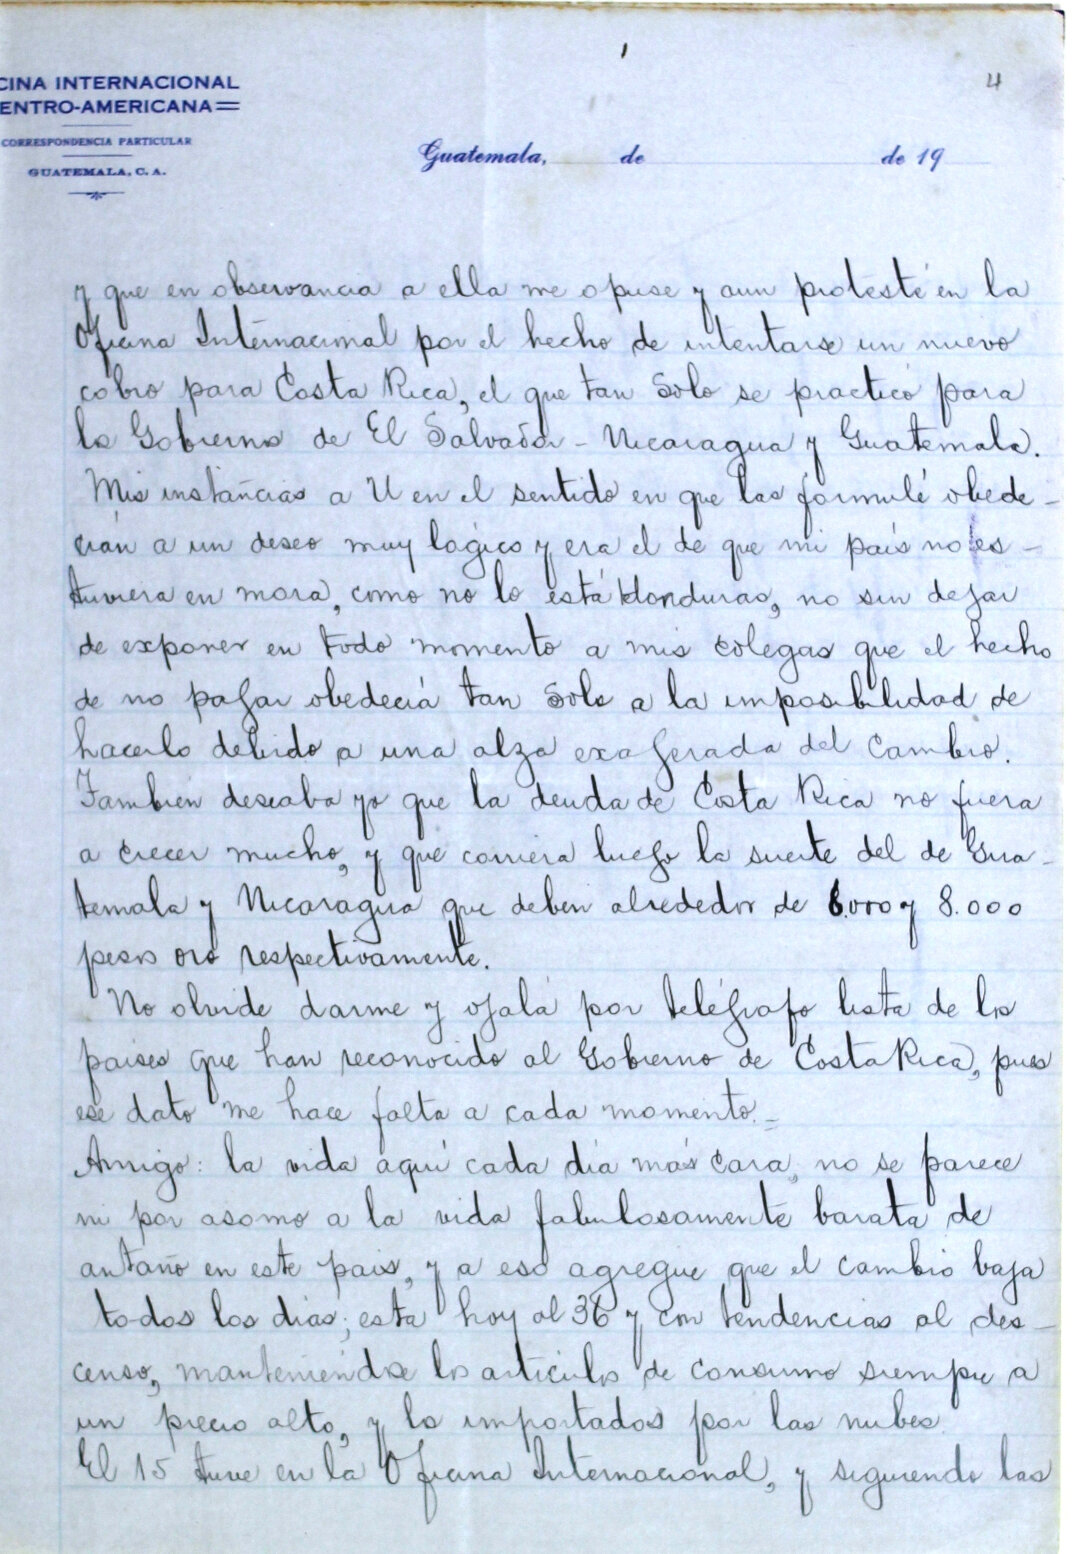 CINA INTERNACIONAL
ENTRO-AMERICANA
CORRESPONDENCIA PARTICULAR
GUATEMALA, C. A.
4
Guatemala, de de 19
y que en observancia a ella me opuse y aun protesté en la
Oficina Internacional por el hecho de intentarse un nuevo
cobro para Costa Rica, el que tan solo se practicó para
los Gobiernos de El Salvador - Nicaragua y Guatemala.
Mis instancias a U en el sentido en que las formulé obede-
cían a un deseo muy lógico y era el de que mi país no es-
tuviera en mora, como no lo está Honduras, no sin dejar
de exponer en todo momento a mis colegas que el hecho
de no pagar obedecía tan solo a la imposibilidad de
hacerlo debido a una alza exagerada del cambio.
También deseaba yo que la deuda de Costa Rica no fuera
a crecer mucho, y que corriera luego la suerte del de Gua-
temala y Nicaragua que deben alrededor de 6.000 y 8.000
pesos oro respectivamente.
No olvide darme y ojalá por telégrafo lista de los
países que han reconocido al Gobierno de Costa Rica, pues
ese dato me hace falta a cada momento.=
Amigo: la vida aquí cada día más cara, no se parece
ni por asomo a la vida fabulosamente barata de
antaño en este país, y a eso agregue que el cambio baja
todos los días; esta hoy al 36 y con tendencias al des-
censo, manteniéndose los artículos de consumo siempre a
un precio alto, y los importados por las nubes.
El 15 tuve en la Oficina Internacional, y siguiendo las